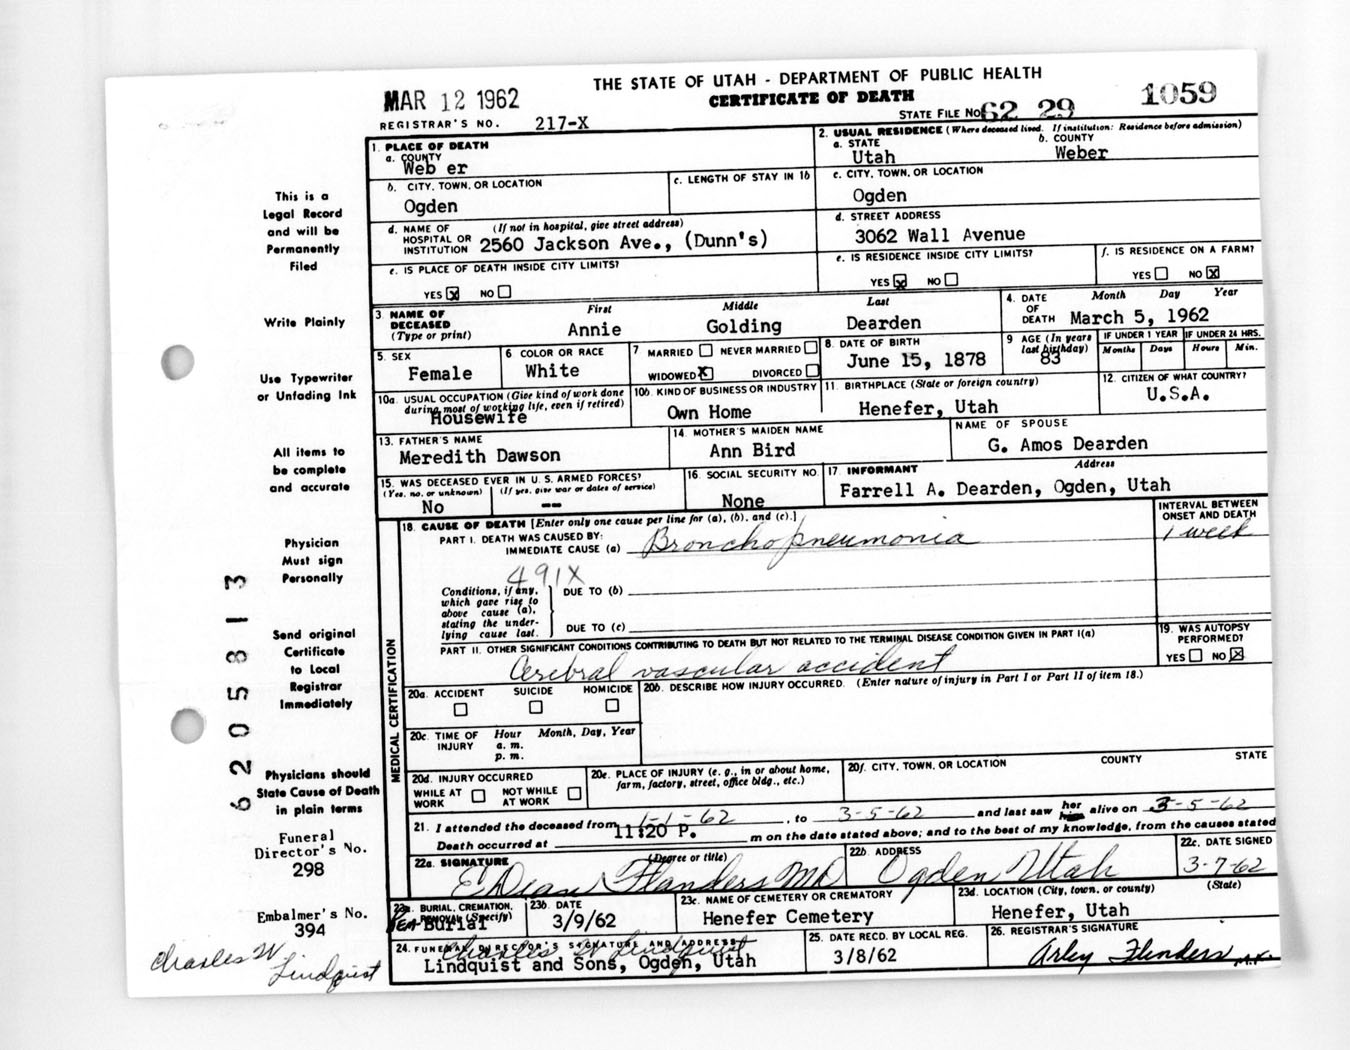 THE STATE OF UTAH - DEPARTMENT OF PUBLIC HEALTH
MAR 12 1962
CERTIFICATE OF DEATH
1059
STATE FILE NO. 62 29
REGISTRAR'S NO. 217-X
1. PLACE OF DEATH
a. COUNTY
Web er
2. USUAL RESIDENCE (Where deceased lived. If institution: Residence before admission)
a. STATE b. COUNTY
Utah Weber
b. CITY, TOWN, OR LOCATION
Ogden
c. LENGTH OF STAY IN 1b
c. CITY, TOWN, OR LOCATION
Ogden
d. NAME OF HOSPITAL OR INSTITUTION (If not in hospital, give street address)
2560 Jackson Ave., (Dunn's)
d. STREET ADDRESS
3062 Wall Avenue
e. IS PLACE OF DEATH INSIDE CITY LIMITS?
YES X NO
e. IS RESIDENCE INSIDE CITY LIMITS?
YES X NO
f. IS RESIDENCE ON A FARM?
YES NO X
3. NAME OF DECEASED (Type or print)
First Middle Last
Annie Golding Dearden
4. DATE OF DEATH
Month Day Year
March 5, 1962
5. SEX
Female
6 COLOR OR RACE
White
7 MARRIED NEVER MARRIED
WIDOWED X DIVORCED
8. DATE OF BIRTH
June 15, 1878
9 AGE (In years last birthday)
83
IF UNDER 1 YEAR IF UNDER 24 HRS.
Months Days Hours Min.
10a. USUAL OCCUPATION (Give kind of work done during most of working life, even if retired)
Housewife
10b. KIND OF BUSINESS OR INDUSTRY
Own Home
11. BIRTHPLACE (State or foreign country)
Henefer, Utah
12. CITIZEN OF WHAT COUNTRY?
U.S.A.
13. FATHER'S NAME
Meredith Dawson
14. MOTHER'S MAIDEN NAME
Ann Bird
NAME OF SPOUSE
G. Amos Dearden
15. WAS DECEASED EVER IN U.S. ARMED FORCES?
(Yes, no, or unknown) (If yes, give war or dates of service)
No --
16. SOCIAL SECURITY NO.
None
17. INFORMANT Address
Farrell A. Dearden, Ogden, Utah
MEDICAL CERTIFICATION
18. CAUSE OF DEATH [Enter only one cause per line for (a), (b), and (c).]
INTERVAL BETWEEN ONSET AND DEATH
PART I. DEATH WAS CAUSED BY:
IMMEDIATE CAUSE (a) Bronchopneumonia
1 week
491X
Conditions, if any, which gave rise to above cause (a), stating the underlying cause last.
DUE TO (b)
DUE TO (c)
PART II. OTHER SIGNIFICANT CONDITIONS CONTRIBUTING TO DEATH BUT NOT RELATED TO THE TERMINAL DISEASE CONDITION GIVEN IN PART I(a)
Cerebral vascular accident
19. WAS AUTOPSY PERFORMED?
YES NO X
20a. ACCIDENT SUICIDE HOMICIDE
20b. DESCRIBE HOW INJURY OCCURRED. (Enter nature of injury in Part I or Part II of item 18.)
20c. TIME OF INJURY
Hour Month, Day, Year
a. m.
p. m.
20d. INJURY OCCURRED
WHILE AT WORK NOT WHILE AT WORK
20e. PLACE OF INJURY (e. g., in or about home, farm, factory, street, office bldg., etc.)
20f. CITY, TOWN, OR LOCATION COUNTY STATE
21. I attended the deceased from 1-1-62, to 3-5-62 and last saw her him alive on 3-5-62
Death occurred at 11:20 P. m on the date stated above; and to the best of my knowledge, from the causes stated
22a. SIGNATURE (Degree or title)
E Dean Flanders MD
22b. ADDRESS
Ogden Utah
22c. DATE SIGNED
3-7-62
23a. BURIAL, CREMATION, REMOVAL (Specify)
Burial
23b. DATE
3/9/62
23c. NAME OF CEMETERY OR CREMATORY
Henefer Cemetery
23d. LOCATION (City, town, or county) (State)
Henefer, Utah
24. FUNERAL DIRECTOR'S SIGNATURE AND ADDRESS
Charles W Lindquist
Lindquist and Sons, Ogden, Utah
25. DATE RECD. BY LOCAL REG.
3/8/62
26. REGISTRAR'S SIGNATURE
Arley Flinders
This is a
Legal Record
and will be
Permanently
Filed
Write Plainly
Use Typewriter
or Unfading Ink
All items to
be complete
and accurate
Physician
Must sign
Personally
Send original
Certificate
to Local
Registrar
Immediately
Physicians should
State Cause of Death
in plain terms
Funeral
Director's No.
298
Embalmer's No.
394
Charles W
Lindquist
6205813